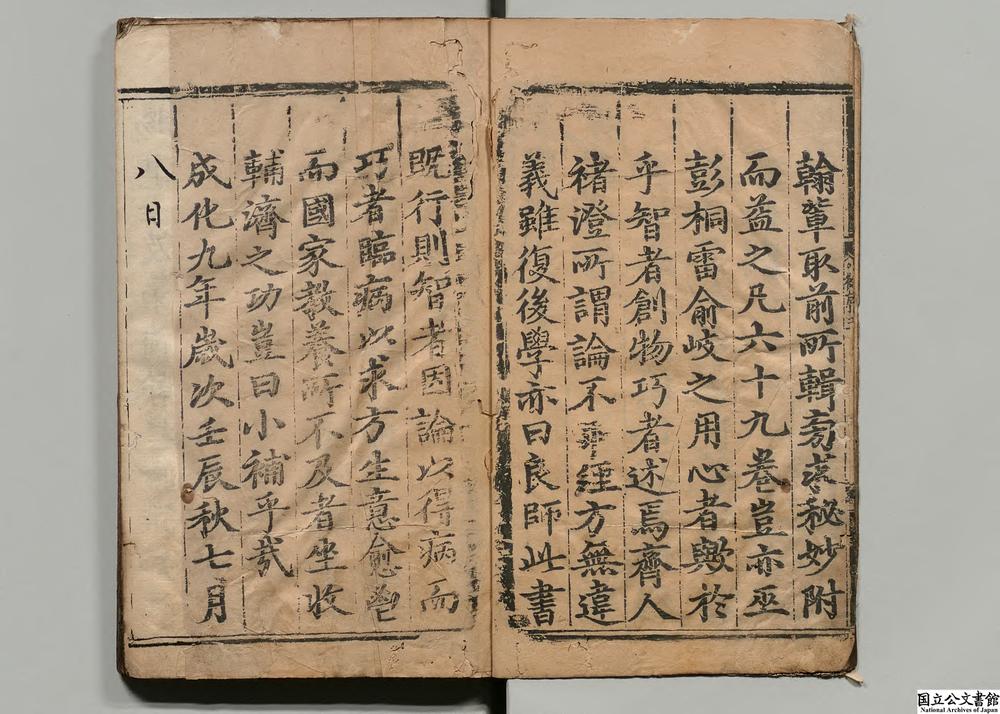 翰軰取前所輯旁蒐秘妙附
而益之凡六十九卷豈亦巫
彭桐雷俞岐之用心者歟於
乎智者創物巧者述焉齊人
褚澄所謂論不 經方無違
義雖復後學亦曰良師此書
既行則智者因論以得病而
巧者臨病以求方生意愈
而國家教養所不及者坐收
輔濟之功豈曰小補乎㢤
成化九年歲次壬辰秋七月
八日
国立公文書館
National Archives of Japan